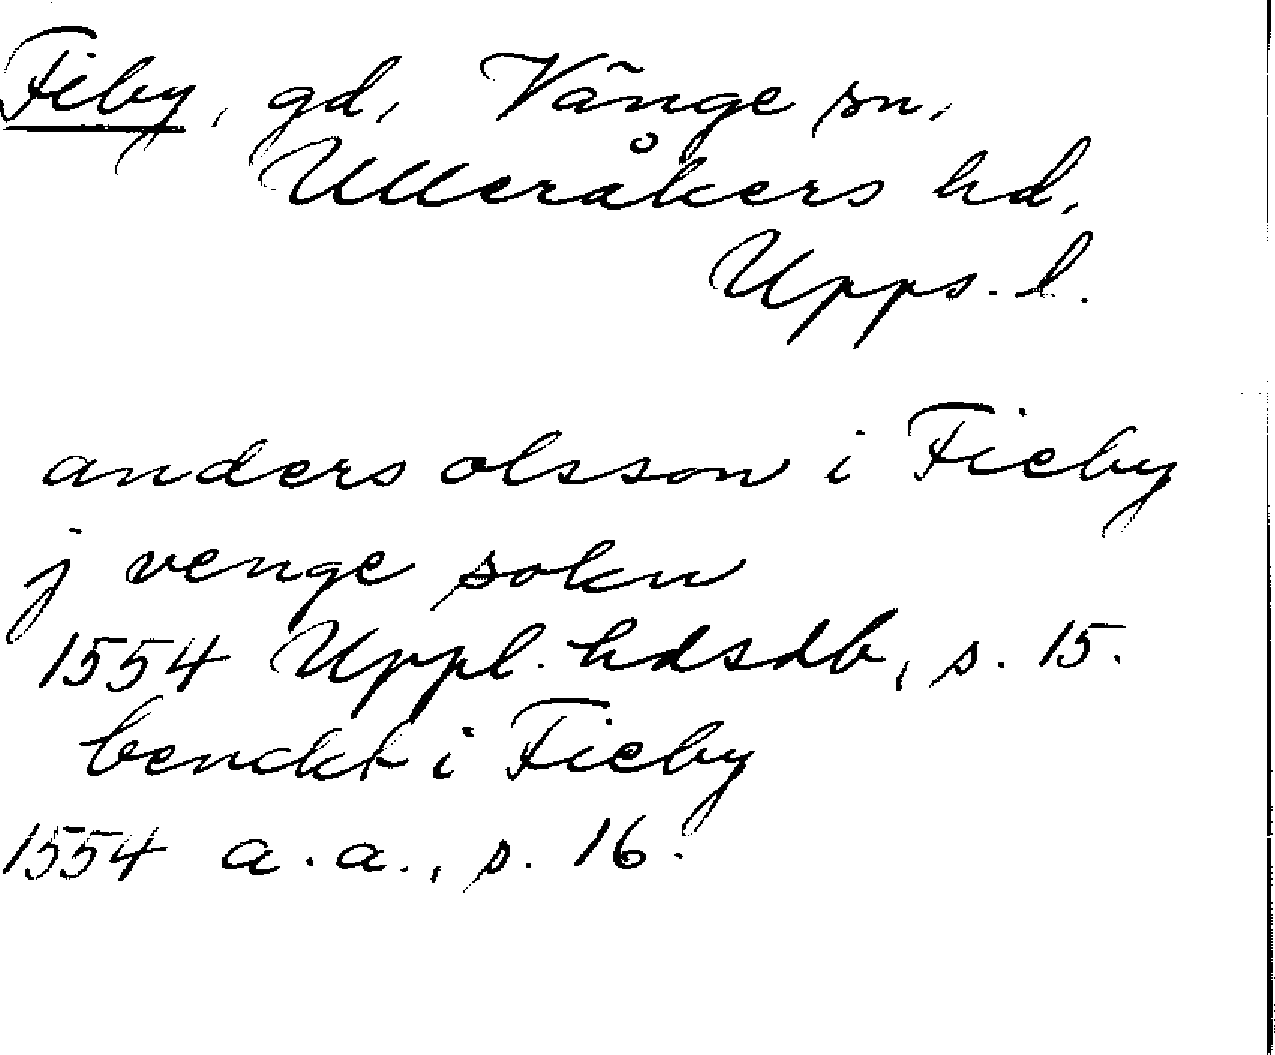 Fiby, gd, Vänge sn,
Ulleråkers hd,
Upps. l.
anders olsson i Fieby
j venge sokn
1554 Uppl. hdsdb, s. 15.
benckt i Fieby
1554 a.a., s. 16.